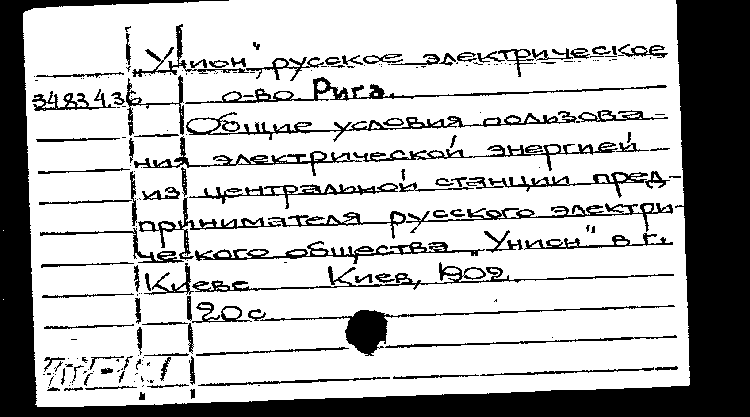 „Унион", русское электрическое
3483436. о-во. Рига.
Общие условия пользова-
ния электрической энергией
из центральной станции пред-
принимателя русского электри-
ческого общества „Унион" в г.
Киеве Киев, 1902.
20 с